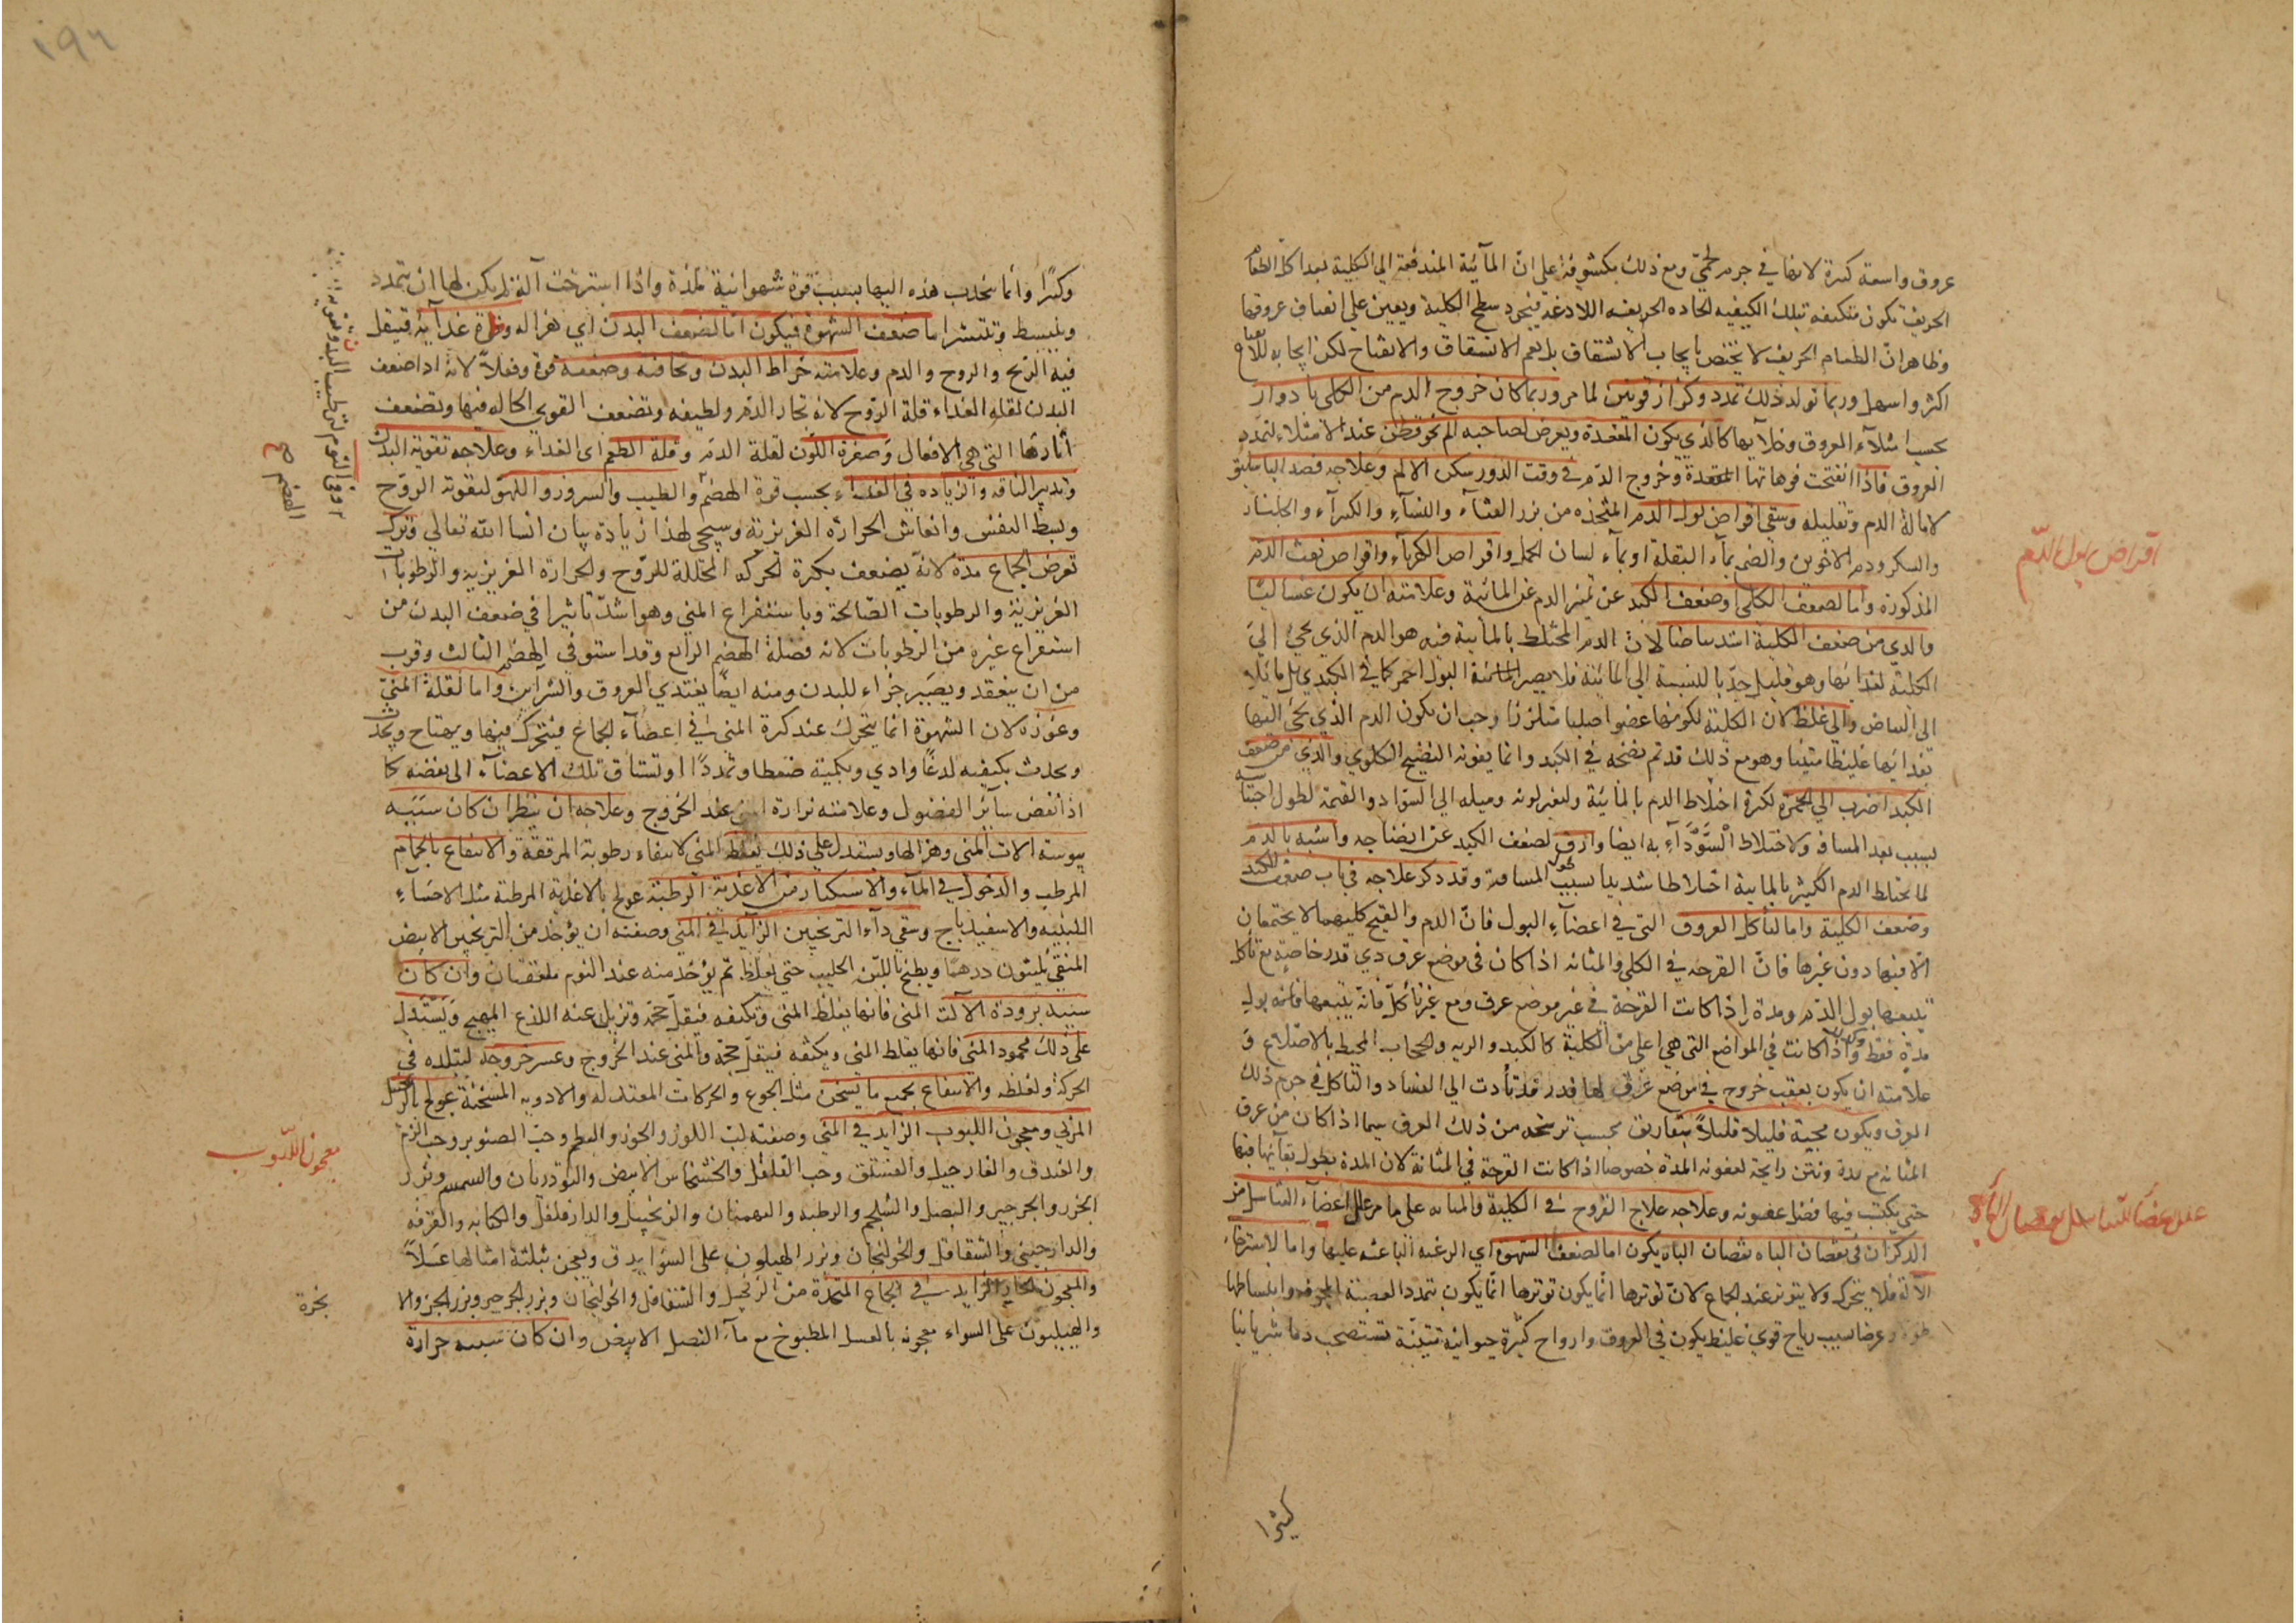 عروق واسعة كبيرة لانها في جرم لحمي ومع ذلك مكشوفة على ان المآئية المندفعة الى الكلية بعد اكل الطعام
الحريف تكون متكيفه بتلك الكيفيه الحاده الحريفه اللادغة فيجرد سطح الكلية ويعين على انصاف عروقها
وظاهر ان الطعام الحريف لا يختص بايجاب الانشقاق بل يعم الانشقاق والانفتاح لكن ايجابه
اكثر واسهل وربما تولد ذلك تمدد وكزاز قويين لما مر وربما كان خروج الدم من الكلى بادوار
بحسب امتلآء العروق وخلآيها كالذي يكون المقعدة ويعرض لصاحبه الم نحو قطن عند الامتلاء لتمدد
العروق فاذا انفتحت فوهاتها المقعدة وخروج الدم في وقت الدور سكن الالم وعلاجه فصد الباسليق
لامالة الدم وتقليله وسقي اقراص بول الدم المتخذه من بزر القثآء والنشآء والكثيرآء والجلنار
والسكر ودم الاخوين والصمغ بمآء البقلة او بمآء لسان الحمل واقراص الكهربآء واقراص نفث الدم
المذكورة واما لضعف الكلى او ضعف الكبد عن تميز الدم عن المائية وعلامته ان يكون غساليا
والذي من ضعف الكلية اشد بياضا لان الدم المختلط بالمائية فيه هو الدم الذي يجئ الى
الكلية لغذائها وهو قليل جدّا بالنسبة الى المائية فلا يصير المائية البول احمر كما في الكبدي بل مائلا
الى البياض والى غلظ لان الكلية لكونها عضوا صلبا متلززا وجب ان يكون الدم الذي يجئ اليها
تغذايها غليظا متينا وهو مع ذلك قد تم نضجه في الكبد وانما يفوته النضج الكلوي والذي من ضعف
الكبد اضرب الى الحمرة لكثرة اختلاط الدم بالمائية ولتغير لونه وميله الى السواد والقتمة لطول
بسبب بعد المسافة ولاختلاط السَّوْدَآءِ به ايضا وارق لضعف الكبد عن انضاجه واشبه بالدم
لما يختلط الدم الكثير بالمايية اختلاطا شديدا بسبب طول المسافة وقد ذكر علاجه في باب ضعف الكبد
وضعف الكلية واما لتأكل العروق التي في اعضآءِ البول فان الدم والقيح كليهما لا يجتمعان
الا فيها دون غيرها فان القرحه في الكلى والمثانه اذا كان في موضع عرق ذي قدر خاصة مع تآكل
تتبعها بول الدم ومدة واذا كانت القرحة في غير موضع عرق ومع غير تأكل فانه يتبعها فانه بول
مدة فقط واذا كانت في المواضع التي هي اعلى من الكلية كالكبد والريه والحجاب المحيط بالاضلاع و
علامته ان يكون بعقب خروج في موضع عرق لها قدر قد تأدت الى الفساد والتآكل في جرم ذلك
العرق ويكون مجيه قليلا قليلاً بتفاريق بحسب ترشحه من ذلك العرق سيما اذا كان من عرق
المثانه مع مدة ونتن رايحة لعفونه المدة خصوصا اذا كانت القرحة في المثانة لان المدة يطول بقآئها فيها
حتى يكتسب فيها فضل عفونه وعلاجه علاج القروح في الكلية والمثانه على ما مر علل اعضآء التناسل من
الذكران في نقصان الباه نقصان الباه يكون اما لضعف الشهوة اي الرغبه الباعثه عليها واما لاسترخاء
الآلة فلا يتحرك ولا يتوتر عند الجماع لان توترها انما يكون توترها انما يكون بتمدد العصبة المجوفه وانبساطها
طولا وعرضا بسبب رياح قوي غليظ يكون في العروق وارواح كثيرة حيوانية متينة تستصحب دما شريانيا
اقراص بول الدم
علل اعضآء التناسل نقصان الباه
كثيرا
١٩٦
وكثيرًا وانما ينجذب هذه اليها بسبب قوة شهوانية ملذة واذا استرخت آلة لم يكن لها ان يتمدد
وينبسط وتنتشر اما ضعف الشهوة فيكون اما لضعف البدن اي هزاله وقلة غذآئه فيقل
فيه الريح والروح والدم وعلامته خراط البدن ونحافته وضعفه قوة وفعلاً لانه اذا ضعف
البدن لقله الغذاء قلة الروح لانه بخار الدم ولطيفه وتضعف القوي الحاله فيها وتضعف
أثارها التي هي الافعال وصفرة اللون لقلة الدم وقلة الطعم اى الغذاء وعلاجه تقوية البدن
وتدبير الناقه والزياده في الغذاء بحسب قوة الهضم والطيب والسرور واللهو لتقوية الروح
وبسط النفس وانعاش الحرارة الغريزية وسيجي لهذا زيادة بيان انشا الله تعالي وترك
تعرض الجماع مدة لانه يضعف بكثرة الحركه المحللة للروح والحرارة الغريزية والرطوبات
الغريزية والرطوبات الصالحة وباستفراغ المني وهو اشد تأثيرا في ضعف البدن من
استفراغ غيره من الرطوبات لانه فضلة الهضم الرابع وقد استوفى الهضم الثالث وقرب
من ان ينعقد ويصير جزاء للبدن ومنه ايضًا يغتدي العروق والشرايين واما لقلة المني
وعوزه لان الشهوة انما يتحرك عند كثرة المني في اعضآء الجماع فيتحرك فيها ويهتاج
ويحدث بكيفيه لدغًا واذى وبكمية ضغطا وتمددًا او تشتاق تلك الاعضآء الى نفضه كا
اذا نفض سآئر الفضول وعلامته نزارة عند الخروج وعلاجه ان ينظر ان كان سَبَبَه
يبوسة الات المني وهزالها ويستدل على ذلك بغلظ المني لانتفاء رطوبة المرققة والانتفاع بالحمام
المرطب والدخول في المآء والاستكثار من الاغذية الرطبة عولج بالاغذية المرطبة مثل الاحسآء
اللبنيه والاسفيدباج وسقي دآء الترنجبين الزآيد في المني وصفته ان يؤخذ من الترنجبين الابيض
المنقي ثلثون درهما ويطبخ باللبن الحليب حتى يغلظ ثم يؤخذ منه عند النوم ملعقتان وان كان
سببه برودة الآلت المني فانها يغلظ المني وتكثفه فيقل حجمه وتزيل عنه اللذع المهيج وَيَسْتَدل
على ذلك بجمود المني فانها يغلظ المني ويكثفه فيقل حجمه والمني عند الخروج وعسر خروجه لتبلده في
الحركة ولغلظه والانتفاع بجميع ما يسخن مثل الجوع والحركات المعتدله والادويه المسخنة عولج بالزنجبيل
المربي ومعجون اللبوب الزآيد في المني وصفته لب اللوز والجوز والبطم وحب الصنوبر وحب الزلم
والفندق والنارجيل والفستق وحب الفلفل والخشخاش الابيض والتودريان والسمسم وبزر
الجزر والجرجير والبصل والشلجم والرطبه والبهمنان والزنجبيل والدارفلفل والكبابه والقرفه
والدارجيني والشقاقل والخولنجان وبزر الهيلون على السوا يدق ويعجن بثلثة امثالها عَسَلاً
والمعجون الحار الزايد في الجماع المتخذة من الزنجبيل والشقاقل والخولنجان وبزر الجرجير وبزر الجزر والا
والهيليون على السواء معجونه بالعسل المطبوخ مع مآء البصل الابيض وان كان سببه حرارة
معجون اللبوب
الهضم